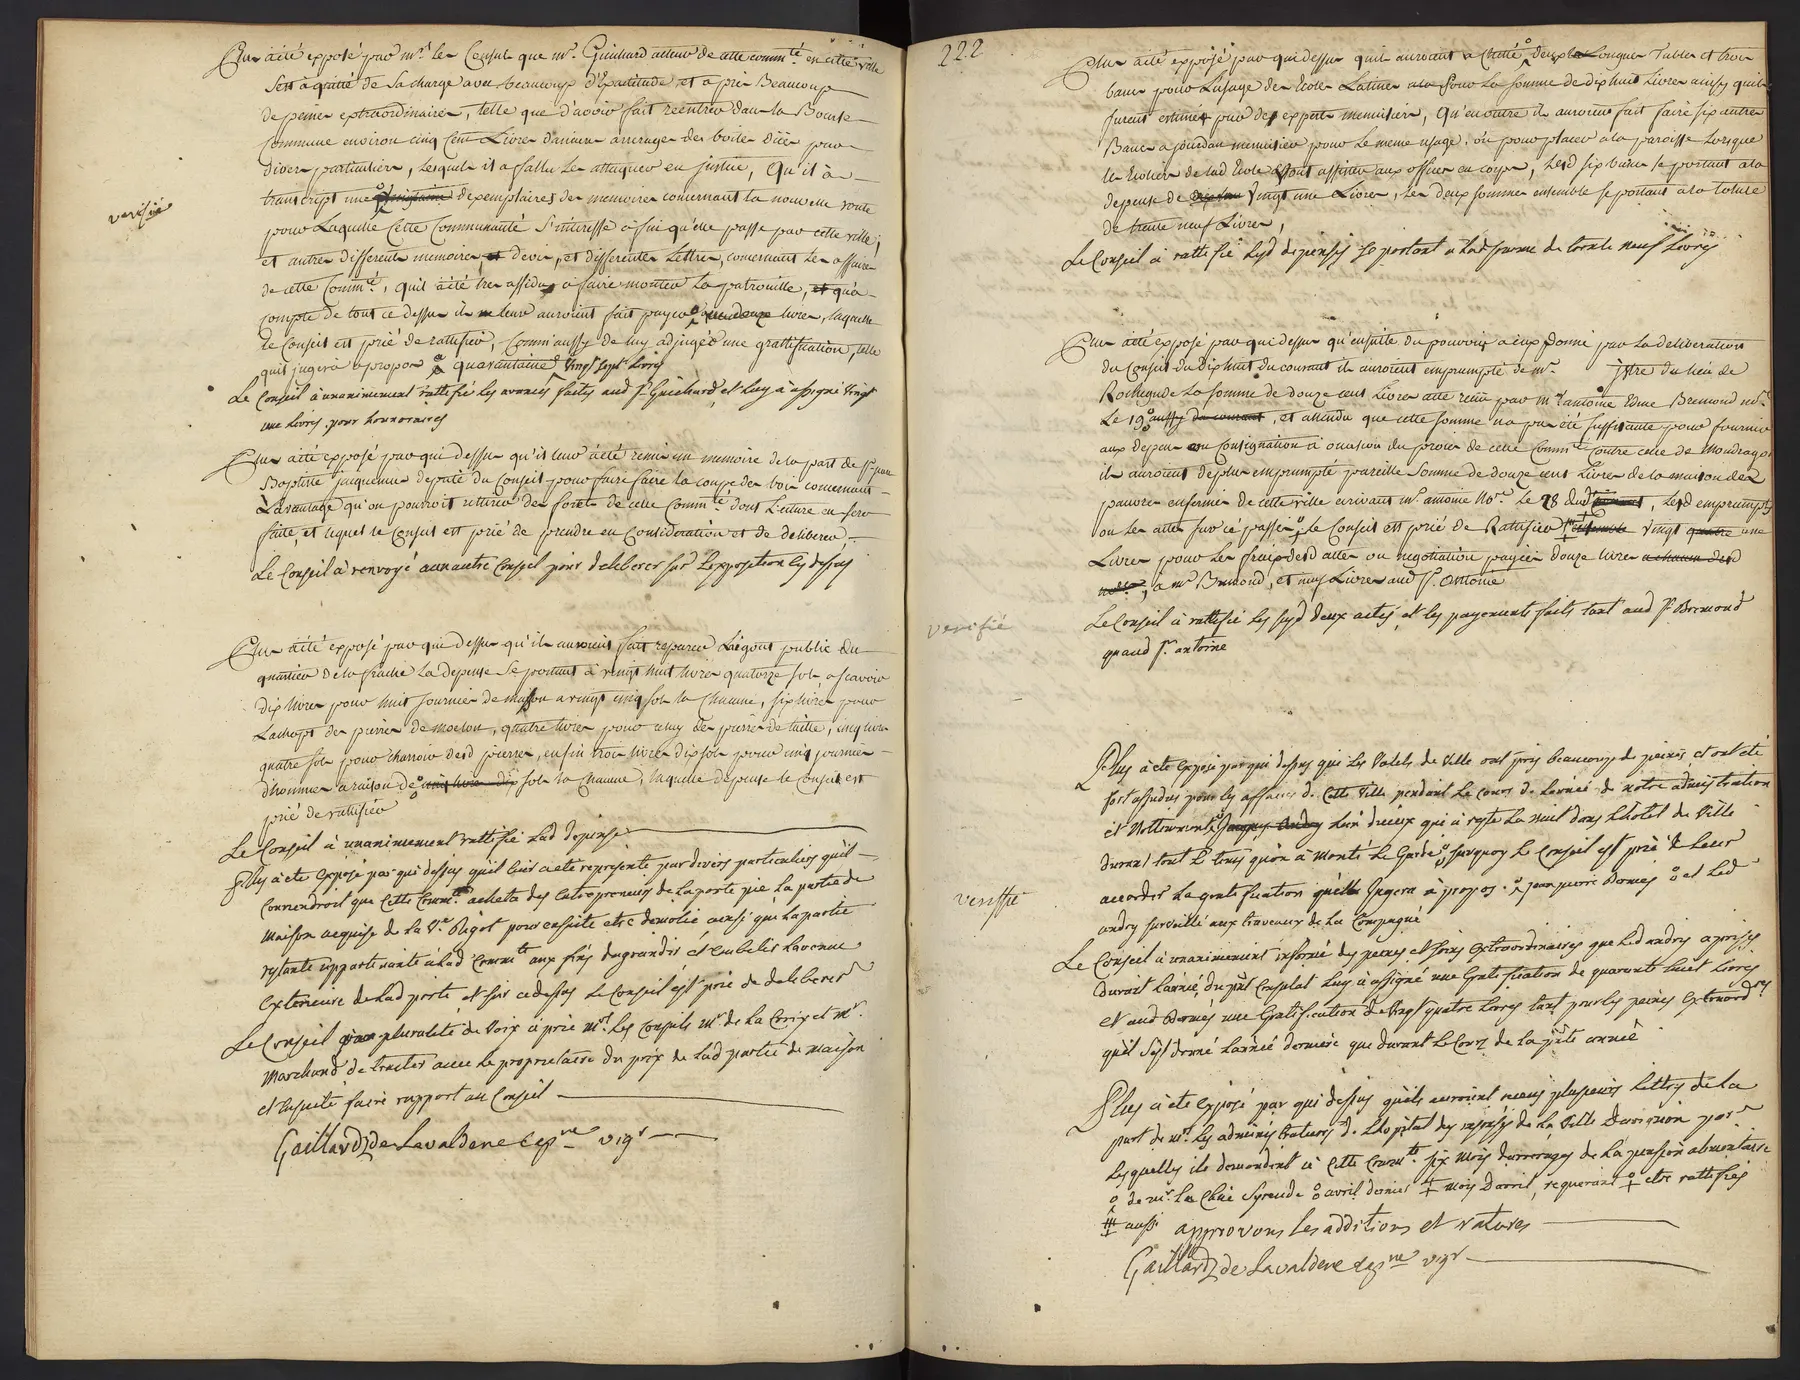 Plus a été exposé par mrs les Consuls que mr Guichard acteur de cette commté en cette ville
s'est aquitté de sa charge avec beaucoup d'Exatitude et a pris Beaucoup
de peines extraordinaires, telle que d'avoir fait reentrer dans la Bourse
commune environ cinq Cent Livres d'anciens arrerages des
divers particuliers, lesquels il a fallu les attaquer en justice, Qu'il a
transcript une d'exemplaires des memoires concernant la nouvelle route
pour Laquelle Cette Communauté S'interesse afin qu'elle passe par cette ville,
et autres differents memoires, et devis, et differentes Lettres, concernant les affaires
de cette Commté, quil a été tres assidu a faire monter la patrouille, et qu'a
compte de tout ce dessus ils leurs auroient fait payer livres, laquelle
le Conseil est prié de ratifier, Comm'aussy de luy adjuger une gratification, telle
quil jugera a propos quarantaine vingt sept livres
Le Conseil à unanimement rattifié les avances faites aud sr Guichard, et luy à assigné vingt
une livres pour honnoraires
verifié
Plus a été exposé par qui dessus qu'il leur a été remis un memoire de la part de sr jean
Baptiste jacquemin deputé du Conseil pour faire faire la coupe des bois concernant
L'avantage qu'on pourroit retirer des forets de cette Commté dont Lecture en sera
faite, et lequel le Conseil est prié de prendre en Consideration et de deliberer,
Le Conseil à renvoyé a un autre Conseil pour deliberer sur L'exposition cy dessus
Plus a été exposé par qui dessus qu'ils auroient fait reparer L'égout public du
quartier de la frache la depense se portant à vingt huit livres quatorze sols a scavoir
dix livres pour huit journées de masson a vingt cinq sols la chacune, six livres pour
L'achapt des pierres de moëlon, quatre livres pour celuy des pierres de taille, cinq livres
quatre sols pour charrois desd pierres, enfin trois livres dix sols pour cinq journées
d'hommes a raison de sols la chacune, laquelle depense le conseil est
prié de ratifier
Le Conseil à unanimement rattifié lad depense
Plus a été exposé par qui dessus qu'il leur a été representé par divers particuliers qu'il
conviendroit que Cette Commté acheta des entrepreneurs de la porte pie la partie de
Maison acquise de la Ve Pigot pour ensuite etre demolie ainsi que la partie
restante appartenante à lad Commté aux fins d'agrandir et embelir l'avenue
exterieure de lad porte et sur ce dessus le Conseil est prié de deliberer
Le Conseil à pluralité de voix a prié mrs Les Consuls mr de la Croix et mr
Marchand de traiter avec le proprietaire du prix de lad partie de maison
et ensuite faire rapport au Conseil
Gaillard de Lavaldene vigr
222
Plus a été exposé par qui dessus quils auroient acheté deux Longues Tables et trois
bancs pour L'usage des Ecoles Latines pour la somme de dix huit Livres ainsy quils
furent estimés par des experts menuisiers, Qu'en outre ils auroient fait faire six autres
Bancs a jourdan menuisier pour le meme usage, ou pour placer a la paroisse lorsque
les Ecoliers de lad Ecole vont assister aux offices en corps, Lesd six bancs se portant a la
depense de vingt une Livres, les deux sommes ensemble se portant a la totale
de trente neuf Livres,
Le Conseil à rattifié lesd depenses se portant a lad somme de trente neuf Livres
Plus a été exposé par qui dessus qu'ensuite du pouvoir a eux donné par la deliberation
du Conseil du dix huit du courant ils auroient emprumpté de mr du lieu de
Rochegude la somme de douze cent Livres acte reçu par mr antoine Edme Bremond nore
Le 19 aussy du courant, et attendu que cette somme n'a pas été suffisante pour fournir
aux depens ou consignation à occasion du procès de cette Commté contre celle de Mondragon
ils auroient de plus emprumpté pareille somme de douze cent Livres de la maison des
pauvres enfermés de cette ville ecrivant mr antoine nore Le 28 dud courant, lesd emprumpts
ou les actes sur ce passés le Conseil est prié de Ratifier ensemble vingt quatre une
Livres pour les frais desd actes ou negotiation payées douze livres a chacun desd
nores, a mr Bremond, et neuf Livres aud sr antoine
Le Conseil à rattifié les susd deux actes, et les payements faits tant aud sr Bremond
quaud sr antoine
verifié
Plus a été exposé par qui dessus que les valets de ville ont pris beaucoup de peines, et ont été
fort assidus pour les affaires de Cette Ville pendant le cours de l'année de notre administration
et nottamment andry qui a resté la nuit dans L'hotel de Ville
durant tout le tems qu'on a monté la Garde, surquoy le Conseil est prié de leur
accorder la gratification qu'elle jugera à propos. jean pierre Bornes et led
andry surveillé aux travaux de la Compagne
Le Conseil à unanimement informé des peines et soins extraordinaires que led andry a prises
durant l'année du pnt Consulat luy à assigné une Gratification de quarante huit livres
et aud Bornes une Gratification de vingt quatre Livres tant pour les peines extraordres
qu'il s'est donné l'année derniere que durant le Cours de la pnte année
verifié
Plus à été exposé par qui dessus qu'ils auroient reçus plusieurs Lettres de la
part de mrs les administrateurs de L'hopital des insensés de la Ville D'avignon par
Lesquelles ils demandent à Cette Commté six mois d'arrerages de la pension alimentaire
de avril dernier mois D'avril, requerant etre rattifiés
aussi approuvons les additions et ratures
Gaillard de Lavaldene vigr